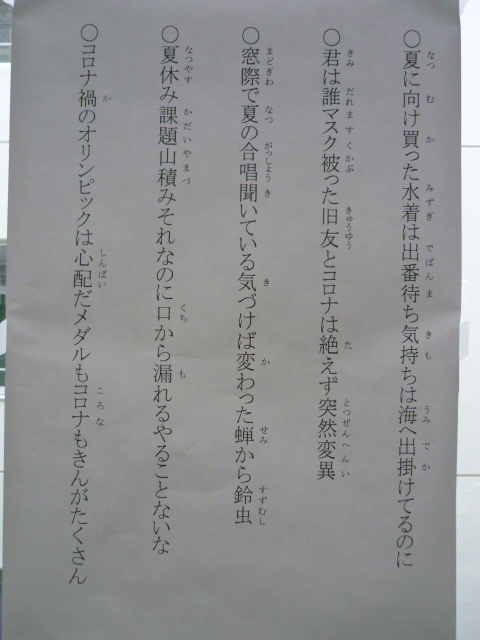 ○夏に向け買った水着は出番待ち気持ちは海へ出掛けてるのに
○君は誰マスク被った旧友とコロナは絶えず突然変異
○窓際で夏の合唱聞いている気づけば変わった蝉から鈴虫
○夏休み課題山積みそれなのに口から漏れるやることないな
○コロナ禍のオリンピックは心配だメダルもコロナもきんがたくさん